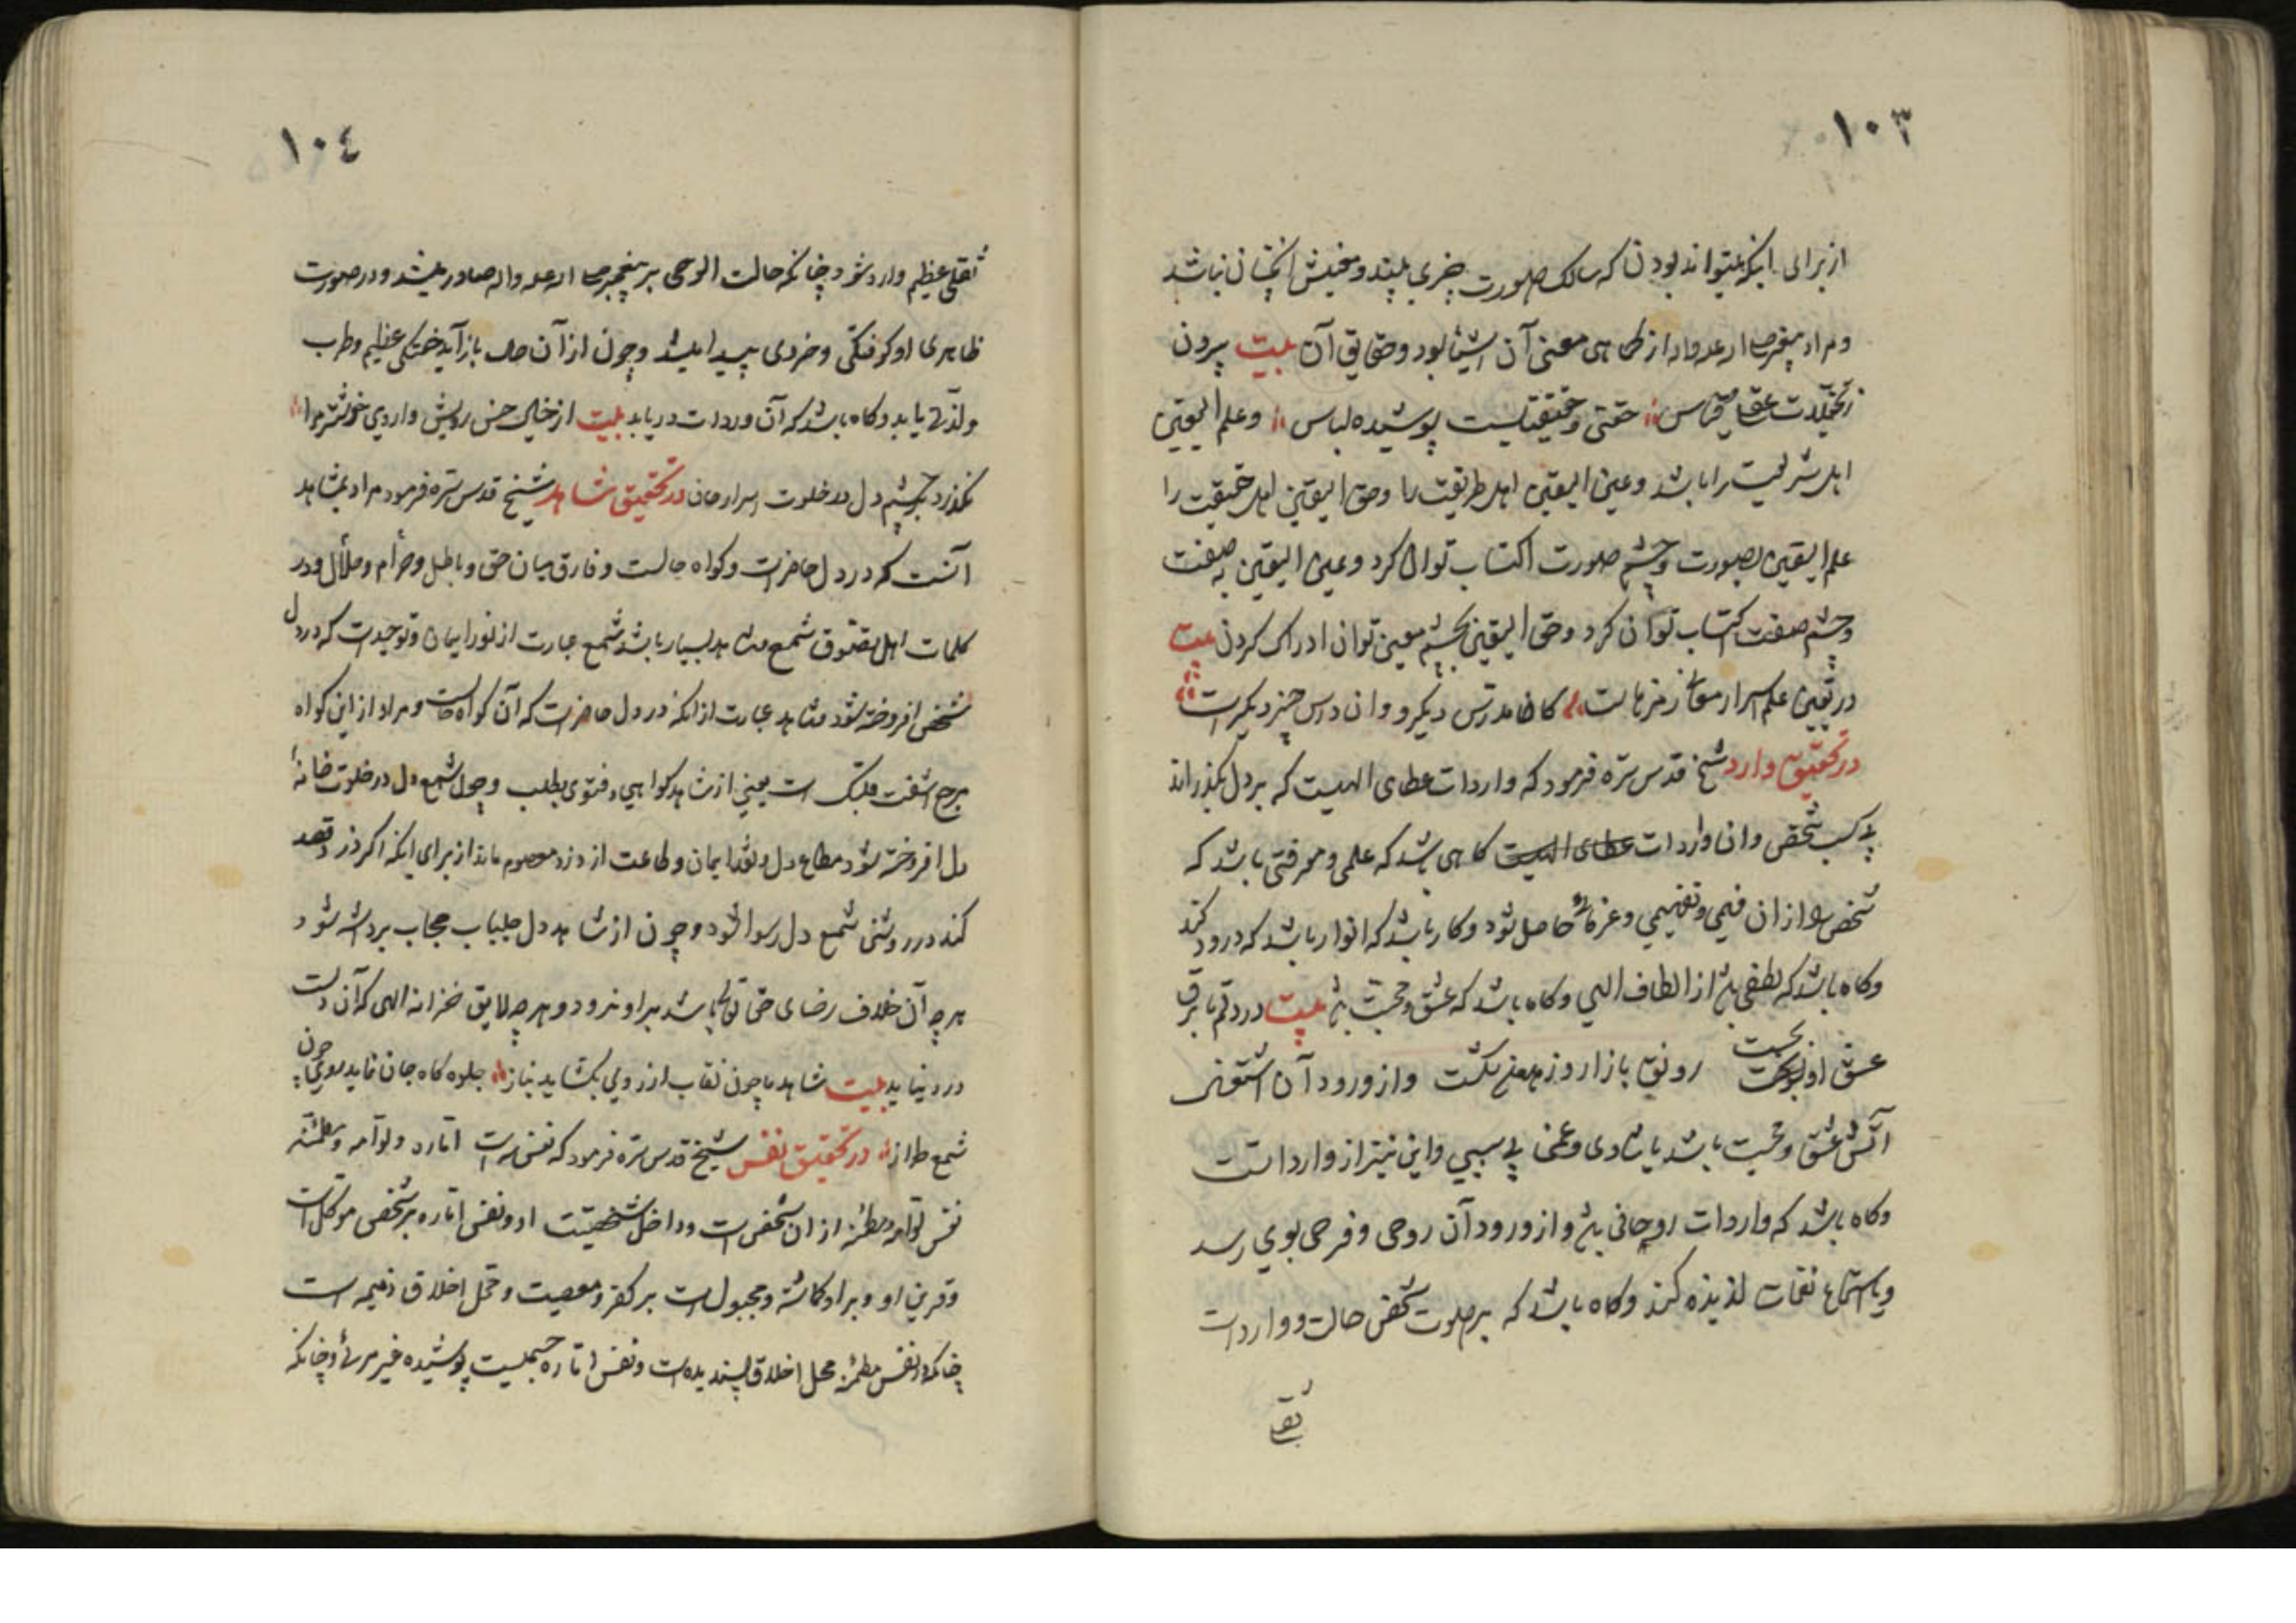 ١٠٣
از برای اینکه میتواند بودن که سالک صورت چیزی بیند و معنیش آنچنان نباشد
و مراد پیغمبر از کماهی معنی آن اشیا بود و حقایق آن بیت برون
ز تخیلات عقل و قیاس حقی و حقیقتیست پوشیده لباس و علم الیقین
اهل شریعت را باشد و عین الیقین اهل طریقت را و حق الیقین اهل حقیقت را
علم الیقین بصورت و چشم صورت اکتساب توان کرد و عین الیقین به صفت
و چشم صفت اکتساب توان کرد و حق الیقین بچشم معین توان ادراک کردن بیت
در تعیین علم اسرار معانی رمزهاست کانجا مدرس دیگر و وان درس چیز دیگر است
در تحقیق وارد شیخ قدس سره فرمود که واردات عطای الهیست که بر دل بگذراند
بی کسب شخص و ان واردات عطای الهیست کاهی باشد که علمی و معرفتی باشد که
شخص را از ان فهمی و تفهیمی و عرفانی حاصل شود و کار باشد که انوار باشد که درود کند
و کاه باشد که لطفی از الطاف الهی و کاه باشد که عشق و محبت بیت در دلم تا برق
عشق او بجست
رونق بازار زهدم شکست و از ورود آن
آتش عشق و محبت باشد یا شادی و غمی بی سببی و این نیز از وارداتست
و کاه باشد که واردات روحانی و از ورود آن روحی و فرحی بوی رسد
و یا استماع نغمات لذیذه کند و کاه باشد که بر صورت شخص حالت و واردات
ثقلی
١٠٤
ثقلی عظیم وارد شود چنانکه حالت الوحی بر پیغمبر صادر میشد و در صورت
ظاهری او کوفتگی و خردی پیدا میشد و چون از آن حال باز آید خنکی عظیم و طرب
و لذتی یابد و کاه باشد که آن وردات دریابد بیت از خیال حسن رویش واردی خوشتر مرا
نگذرد بر چشم دل در خلوت اسرار جان در تحقیق شاهد شیخ قدس سره فرمود مراد بشاهد
آنست که در دل حاضر است و کواه حالست و فارق میان حق و باطل و حرام و حلال و در
کلمات اهل تصوف شمع و شاهد بسیار باشد شمع عبارت از نور ایمان و توحیدست که در دل
شخص افروخته شود و شاهد عبارت از انکه در دل حاضرست که آن کواه حالست و مراد از این کواه
برح استفت قلبک است یعنی از شاهد کواهی و فتوی بطلب و چون شمع دل در خلوت خانهٔ
دل افروخته شود متاع دل و نقد ایمان و طاعت از دزد معصوم ماند از برای اینکه اکر دزد قصد
کند در روشنی شمع دل رسوا شود و چون از شاهد دل جلباب حجاب برداشته شود
هر چه آن خلاف رضای حق تعالی باشد بر او نرود و هر چه لایق خزانه الهی که آن دلست
در و نیاید بیت شاهد ما چون نقاب از روی بکشاید بناز جلوه کاه جان نماید سوی چون
شمع طراز در تحقیق نفس شیخ قدس سره فرمود که نفس سه است اماره و لوامه و مطمئنه
نفس لوامه و مطمئنه از ان شخص است و داخل شخصیت او و نفس اماره بر شخص موکل است
و قرین او و بر او کماشته و مجبول است بر کفر و معصیت و محل اخلاق ذمیمه است
چنانکه نفس مطمئنه محل اخلاق پسندیده است و نفس اماره جسمیست پوشیده غیر مرئی و چنانکه